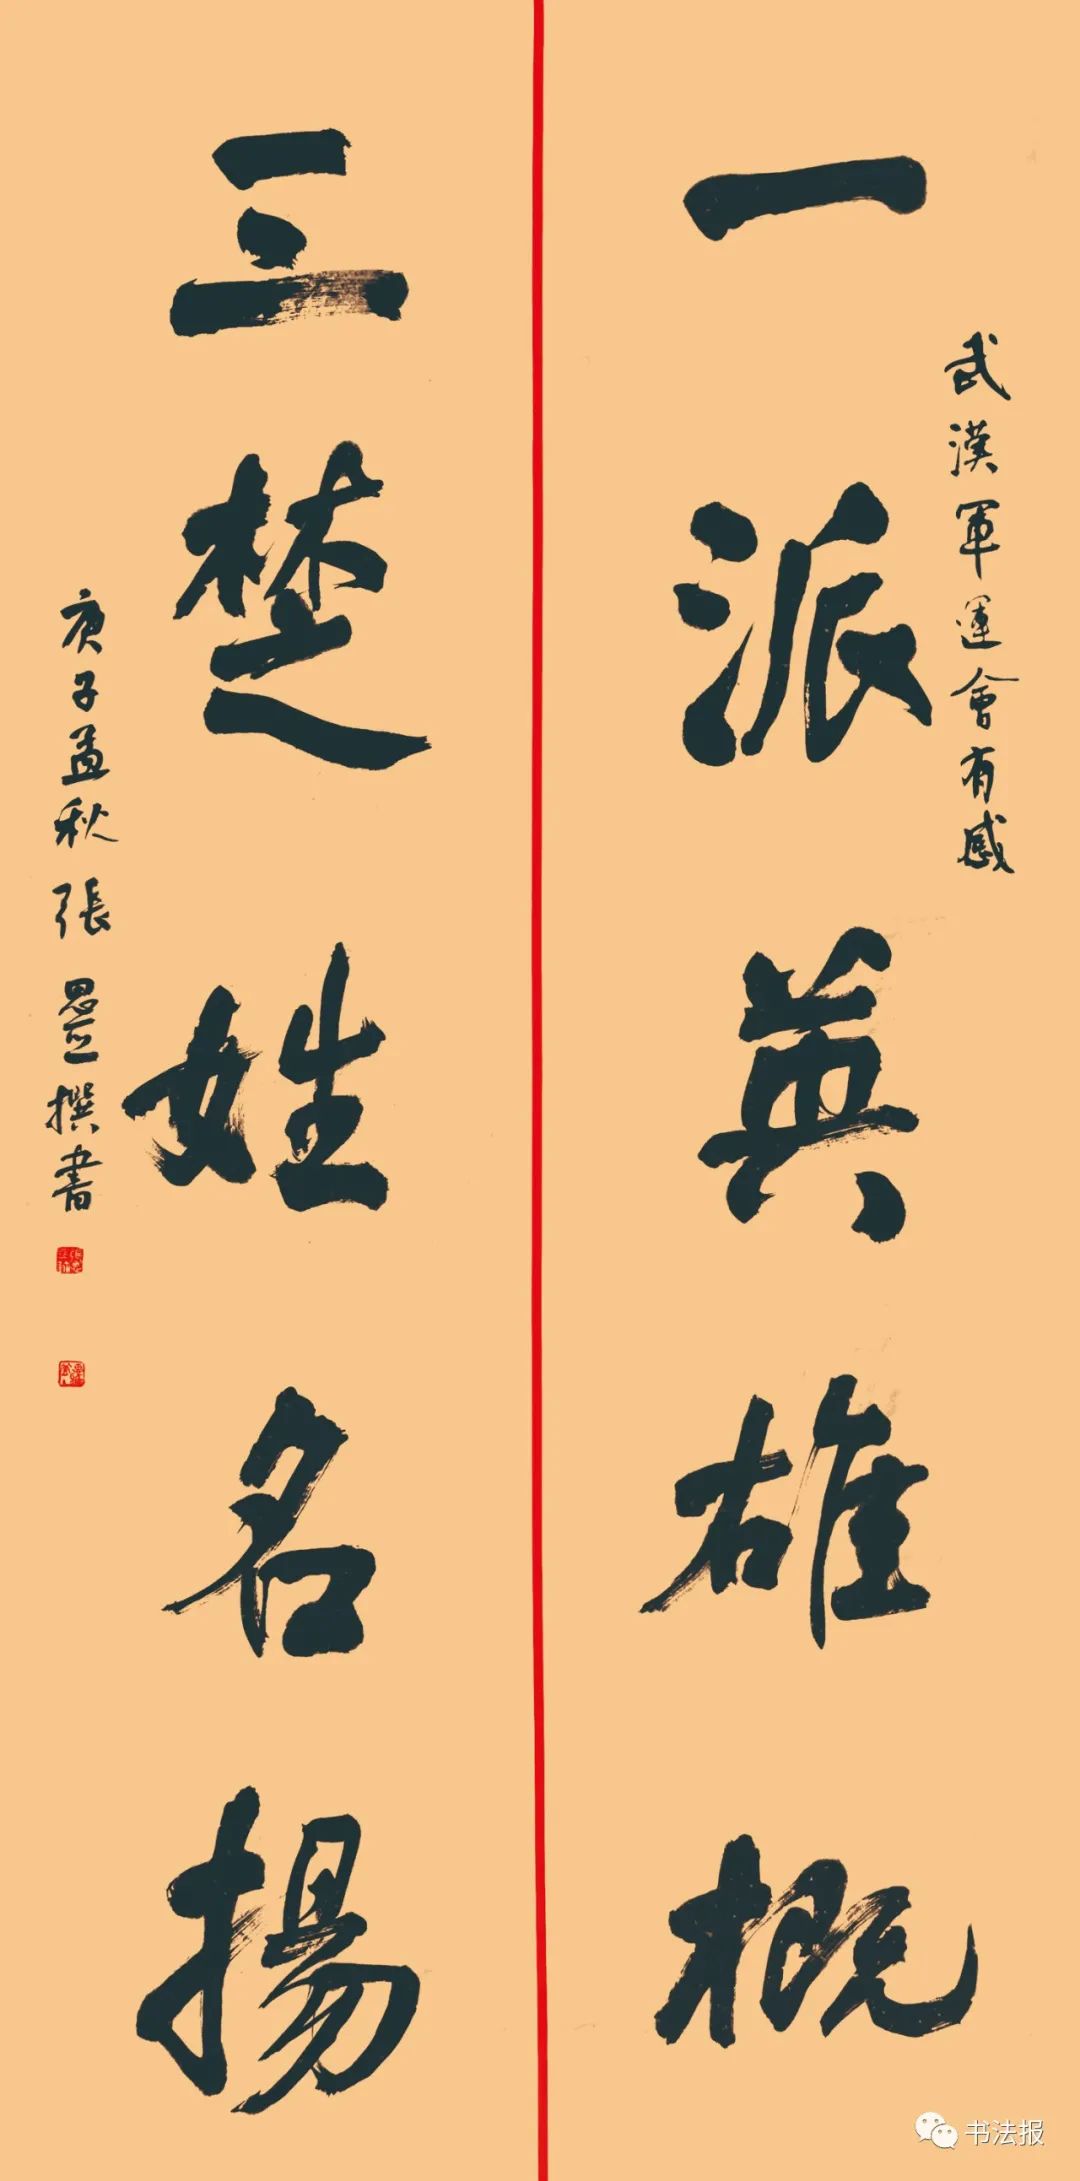 武漢軍運會有感
一派英雄概
三楚姓名揚
庚子孟秋張 撰書
书法报